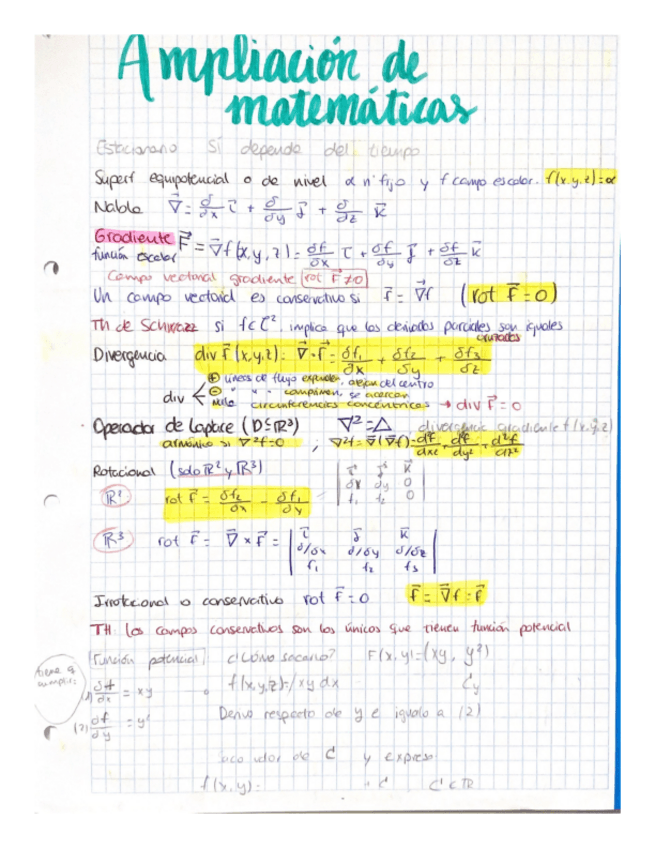 Ampliación de
matemáticas
Estacionario Si depende del tiempo
Superf equipotencial o de nivel α nº fijo y f campo escalar. f(x,y,z)=α
Nabla ∇⃗ = δ/δx i⃗ + δ/δy j⃗ + δ/δz k⃗
Gradiente F⃗ = ∇⃗f(x,y,z) = δf/δx i⃗ + δf/δy j⃗ + δf/δz k⃗
función escalar
Campo vectorial gradiente rot F⃗ ≠ 0
Un campo vectorial es conservativo si f⃗ = ∇⃗f (rot F⃗ = 0)
Th de Schwarz si f ∈ C², implica que las derivadas parciales son iguales
cruzadas
Divergencia div F⃗(x,y,z) = ∇⃗·F⃗ = δf₁/δx + δf₂/δy + δf₃/δz
div ⊕ líneas de flujo expanden, alejan del centro
⊖ " " " comprimen, se acercan
Nula circunferencias concéntricas → div F⃗ = 0
· Operador de Laplace (D⊆ℝ³) ∇² = Δ divergencia gradiente f(x,y,z)
armónico si ∇²f=0 ; ∇²f = ∇⃗(∇⃗f) = d²f/dx² + d²f/dy² + d²f/dz²
Rotacional (solo ℝ² y ℝ³)
ℝ² rot F⃗ = δf₂/δx - δf₁/δy = | i⃗ j⃗ k⃗ |
| δx δy 0 |
| f₁ f₂ 0 |
ℝ³ rot F⃗ = ∇⃗ × F⃗ = | i⃗ j⃗ k⃗ |
| δ/δx δ/δy δ/δz |
| f₁ f₂ f₃ |
Irrotacional o conservativo rot F⃗ = 0 f⃗ = ∇⃗f = F⃗
TH: los campos conservativos son los únicos que tienen función potencial
Función potencial ¿Cómo sacarlo? F(x,y) = (xy, y²)
tiene q
cumplir:
(1) δf/δx = xy ∘ f(x,y,z) = ∫xy dx Cy
(2) δf/δy = y² Derivo respecto de y e igualo a (2)
valor de C y expreso
f(x,y) = + C C ∈ ℝ